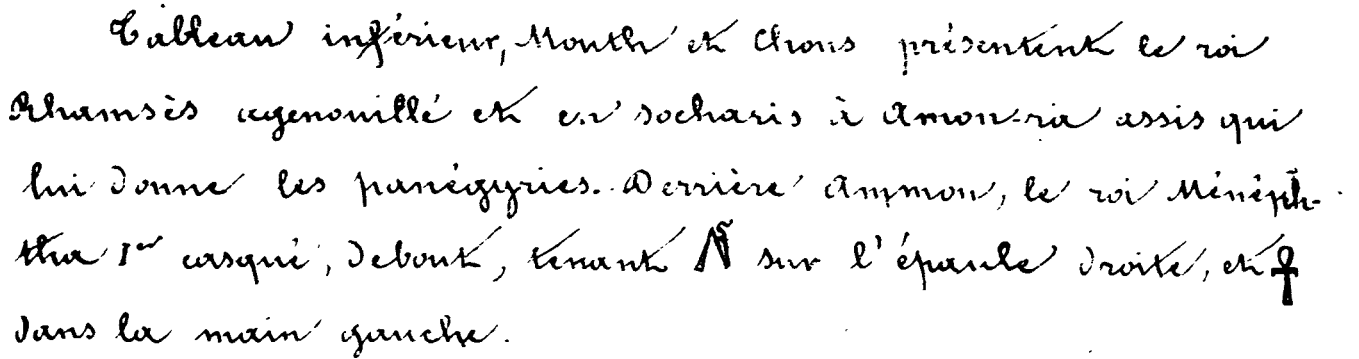 Tableau inférieur, Month et Chons présentent le roi
Rhamsès agenouillé et en socharis à Amon-ra assis qui
lui donne les panégyries. Derrière Ammon, le roi Ménéph-
tha 1er casqué, debout, tenant sur l'épaule droite, et ☥
dans la main gauche.